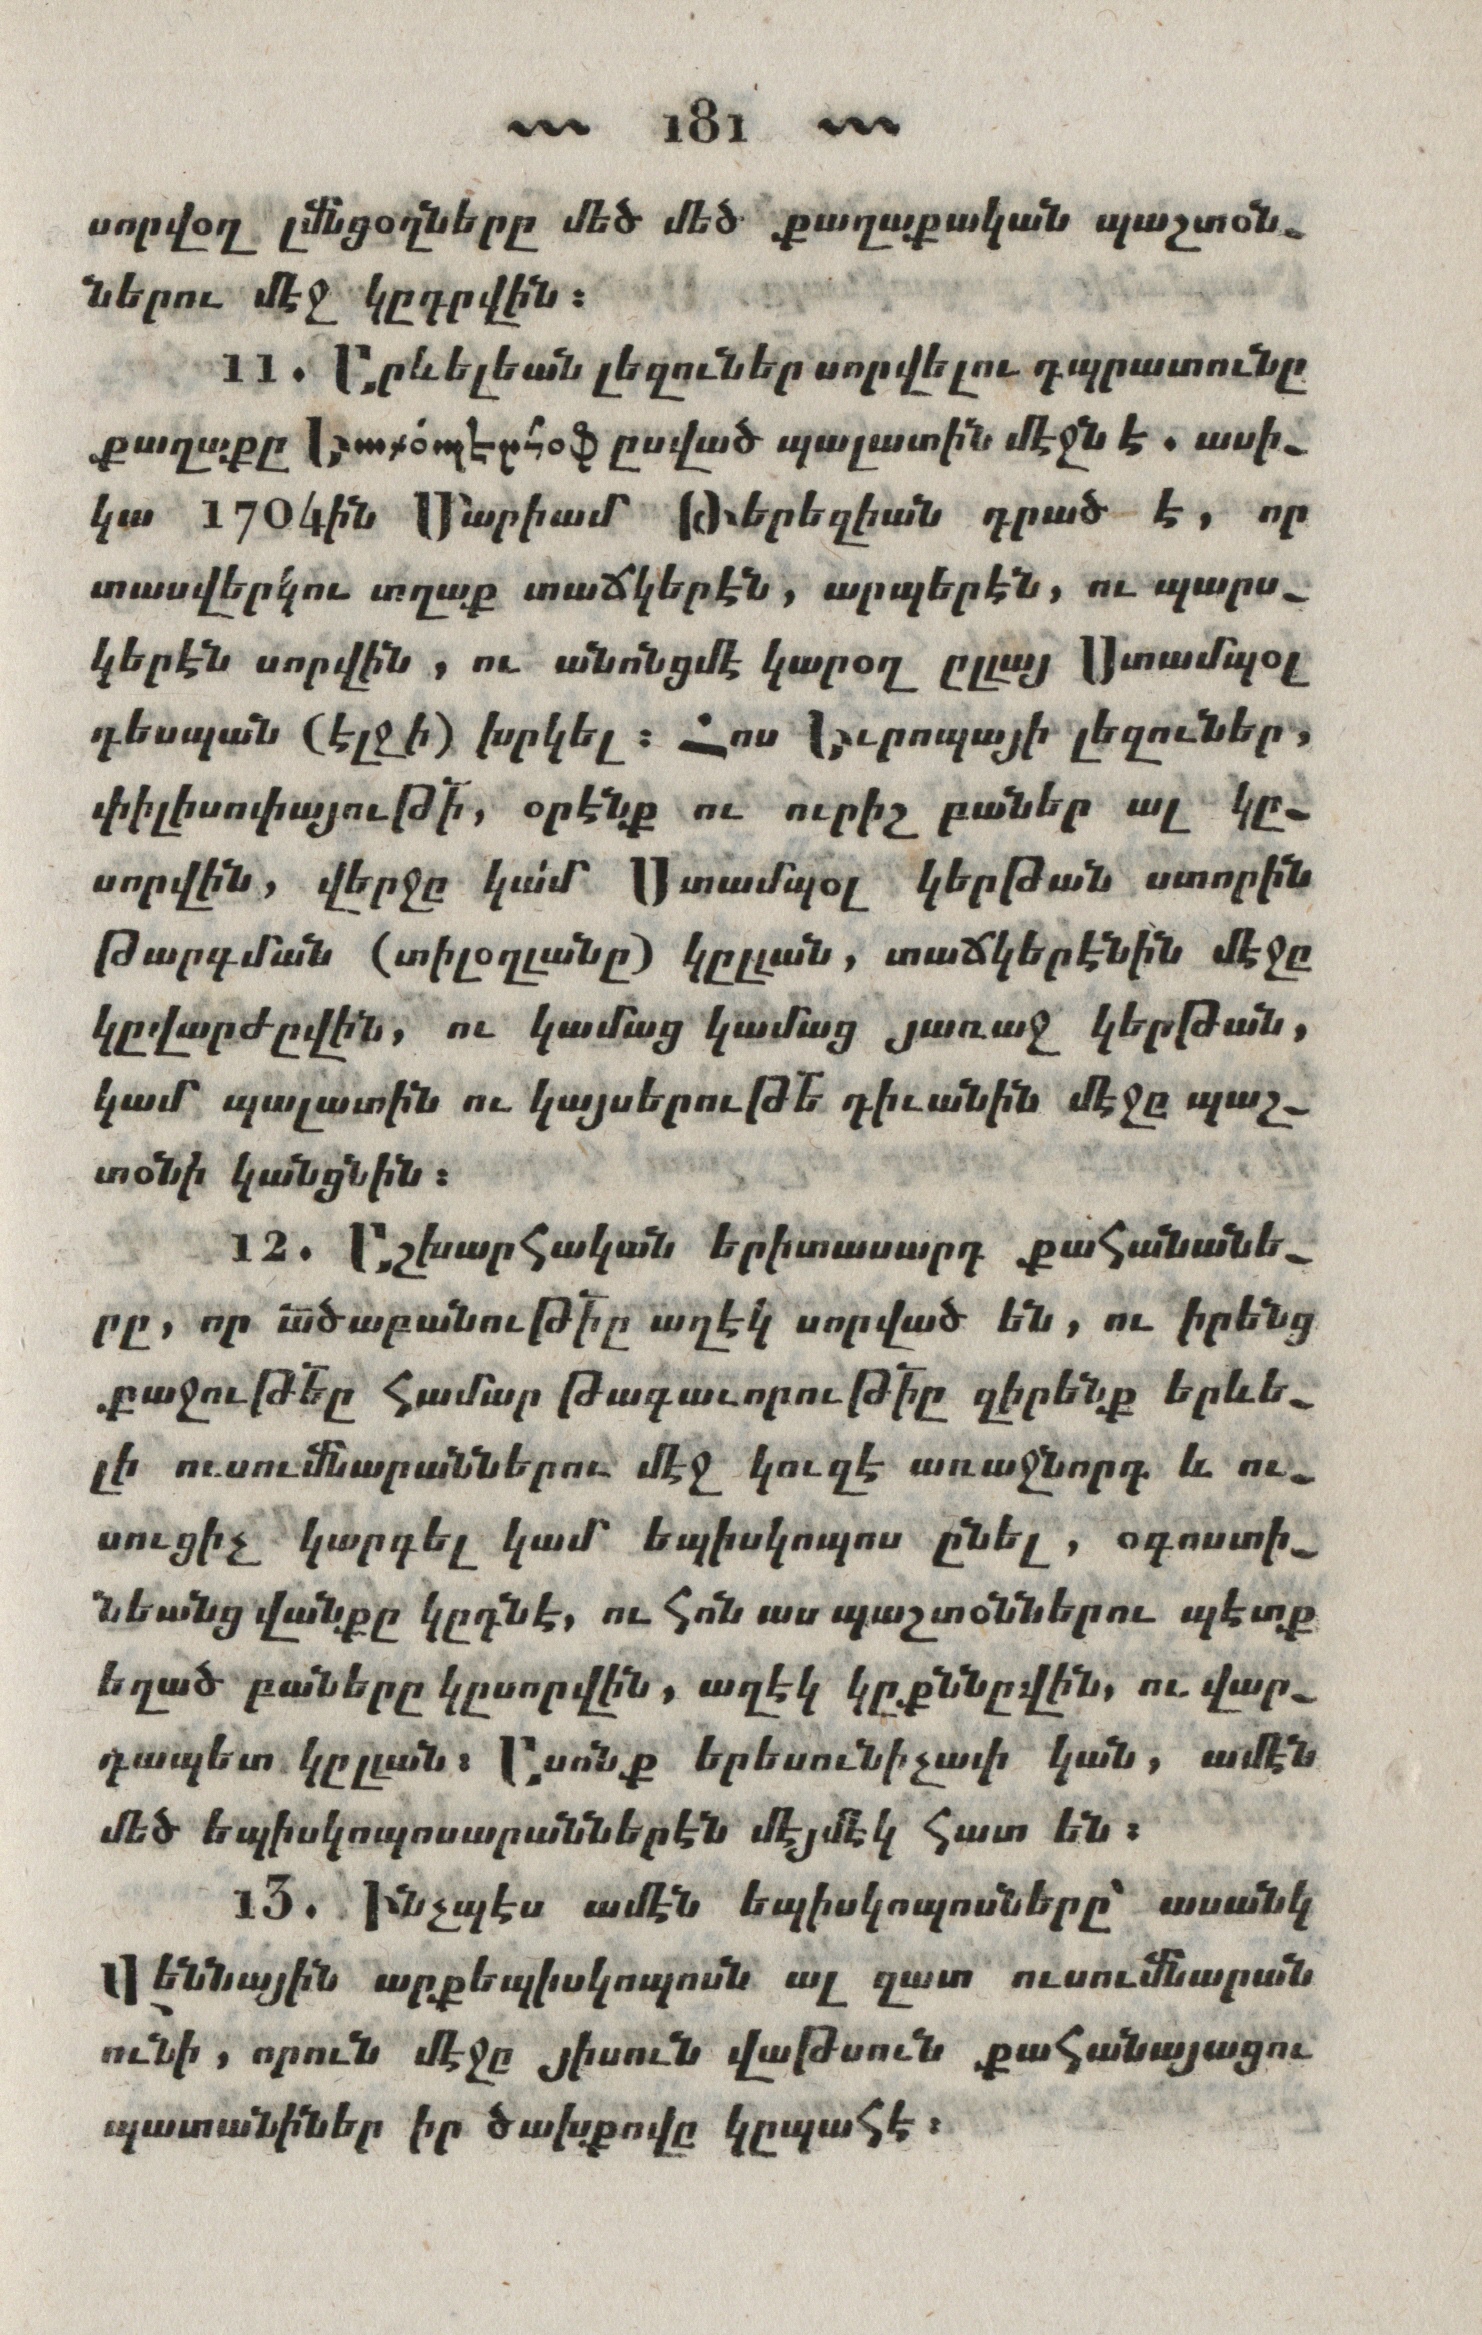 181
սորվօղ լմ՟նցօղները մեծ մեծ քաղաքական պաշտօն֊
ներու մէջ կըդրվին։
11. Արևելեան լեզուներ սորվելու դպրատունը
քաղաքը ըսված պալատին մէջն է. ասի֊
կա 1704ին Մարիամ Թերեզիան դրած է, որ
տասվերկու տղաք տաճկերէն, արպերէն, ու պարս֊
կերէն սորվին, ու անոնցմէ կարօղ ըլլայ Ստամպօլ
դեսպան (էլջի) խրկել։ Հոս Եւրոպայի լեզուներ,
փիլիսոփայութի՟, օրէնք ու ուրիշ բաներ ալ կը֊
սորվին, վերջը կա՛մ Ստամպօլ կերթան ստորին
թարգման (տիլօղլանը) կըլլան, տաճկերէնին մէջը
կըվարժըվին, ու կամաց կամաց յառաջ կերթան,
կամ պալատին ու կայսերութե՟ դիւանին մէջը պաշ֊
տօնի կանցնին։
12. Աշխարհական երիտասարդ քահանանե֊
րը, որ ա՟ծաբանութի՟ը աղէկ սորված են, ու իրենց
քաջութե՟ը համար թագաւորութի՟ը զիրենք երևե֊
լի ուսումնարաններու մէջ կուզէ առաջնորդ և ու֊
սուցիչ կարդել կամ եպիսկոպոս ընել, օգոստի֊
նեանց վանքը կըդնէ, ու հոն աս պաշտօններու պէտք
եղած բաները կըսորվին, աղէկ կըքննըվին, ու վար֊
դապետ կըլլան։ Ասոնք երեսունիչափ կան, ամէն
մեծ եպիսկոպոսարաններէն մէյմէկ հատ են։
13. Ինչպէս ամէն եպիսկոպոսները՝ ասանկ
Վեննային արքեպիսկոպոսն ալ զատ ուսումնարան
ունի, որուն մէջը յիսուն վաթսուն քահանայացու
պատանիներ իր ծախքովը կըպահէ։